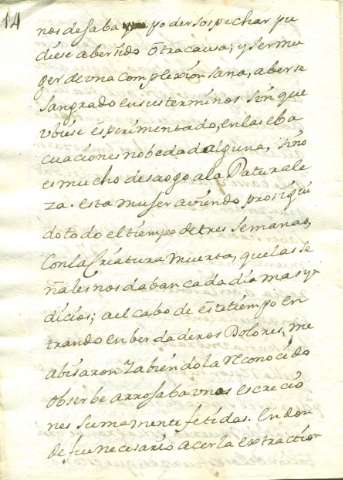 14
nos desaba yo der sospechar pu
diese aber sido otra causa; y ser mu
ger de una complexion sana, aberse
sangrado en sus terminos sin que
ubiese esperimentado, en las eba
cuaciones nobedad alguna, sino
es mucho desaogo a la Naturale
za. esta muger aviendo prosigui
do todo el tiempo de tres semanas,
Con la Criatura muerta, que las se
ñales nos daban cada dia mas yn
dicios; a el cabo de este tiempo en
trando en berdaderos Dolores, me
abisaron Y abiendola Reconocido
obserbe arrojaba unas escrecio
nes sumamente fetidas. En don
de fue necesario acer la extraction